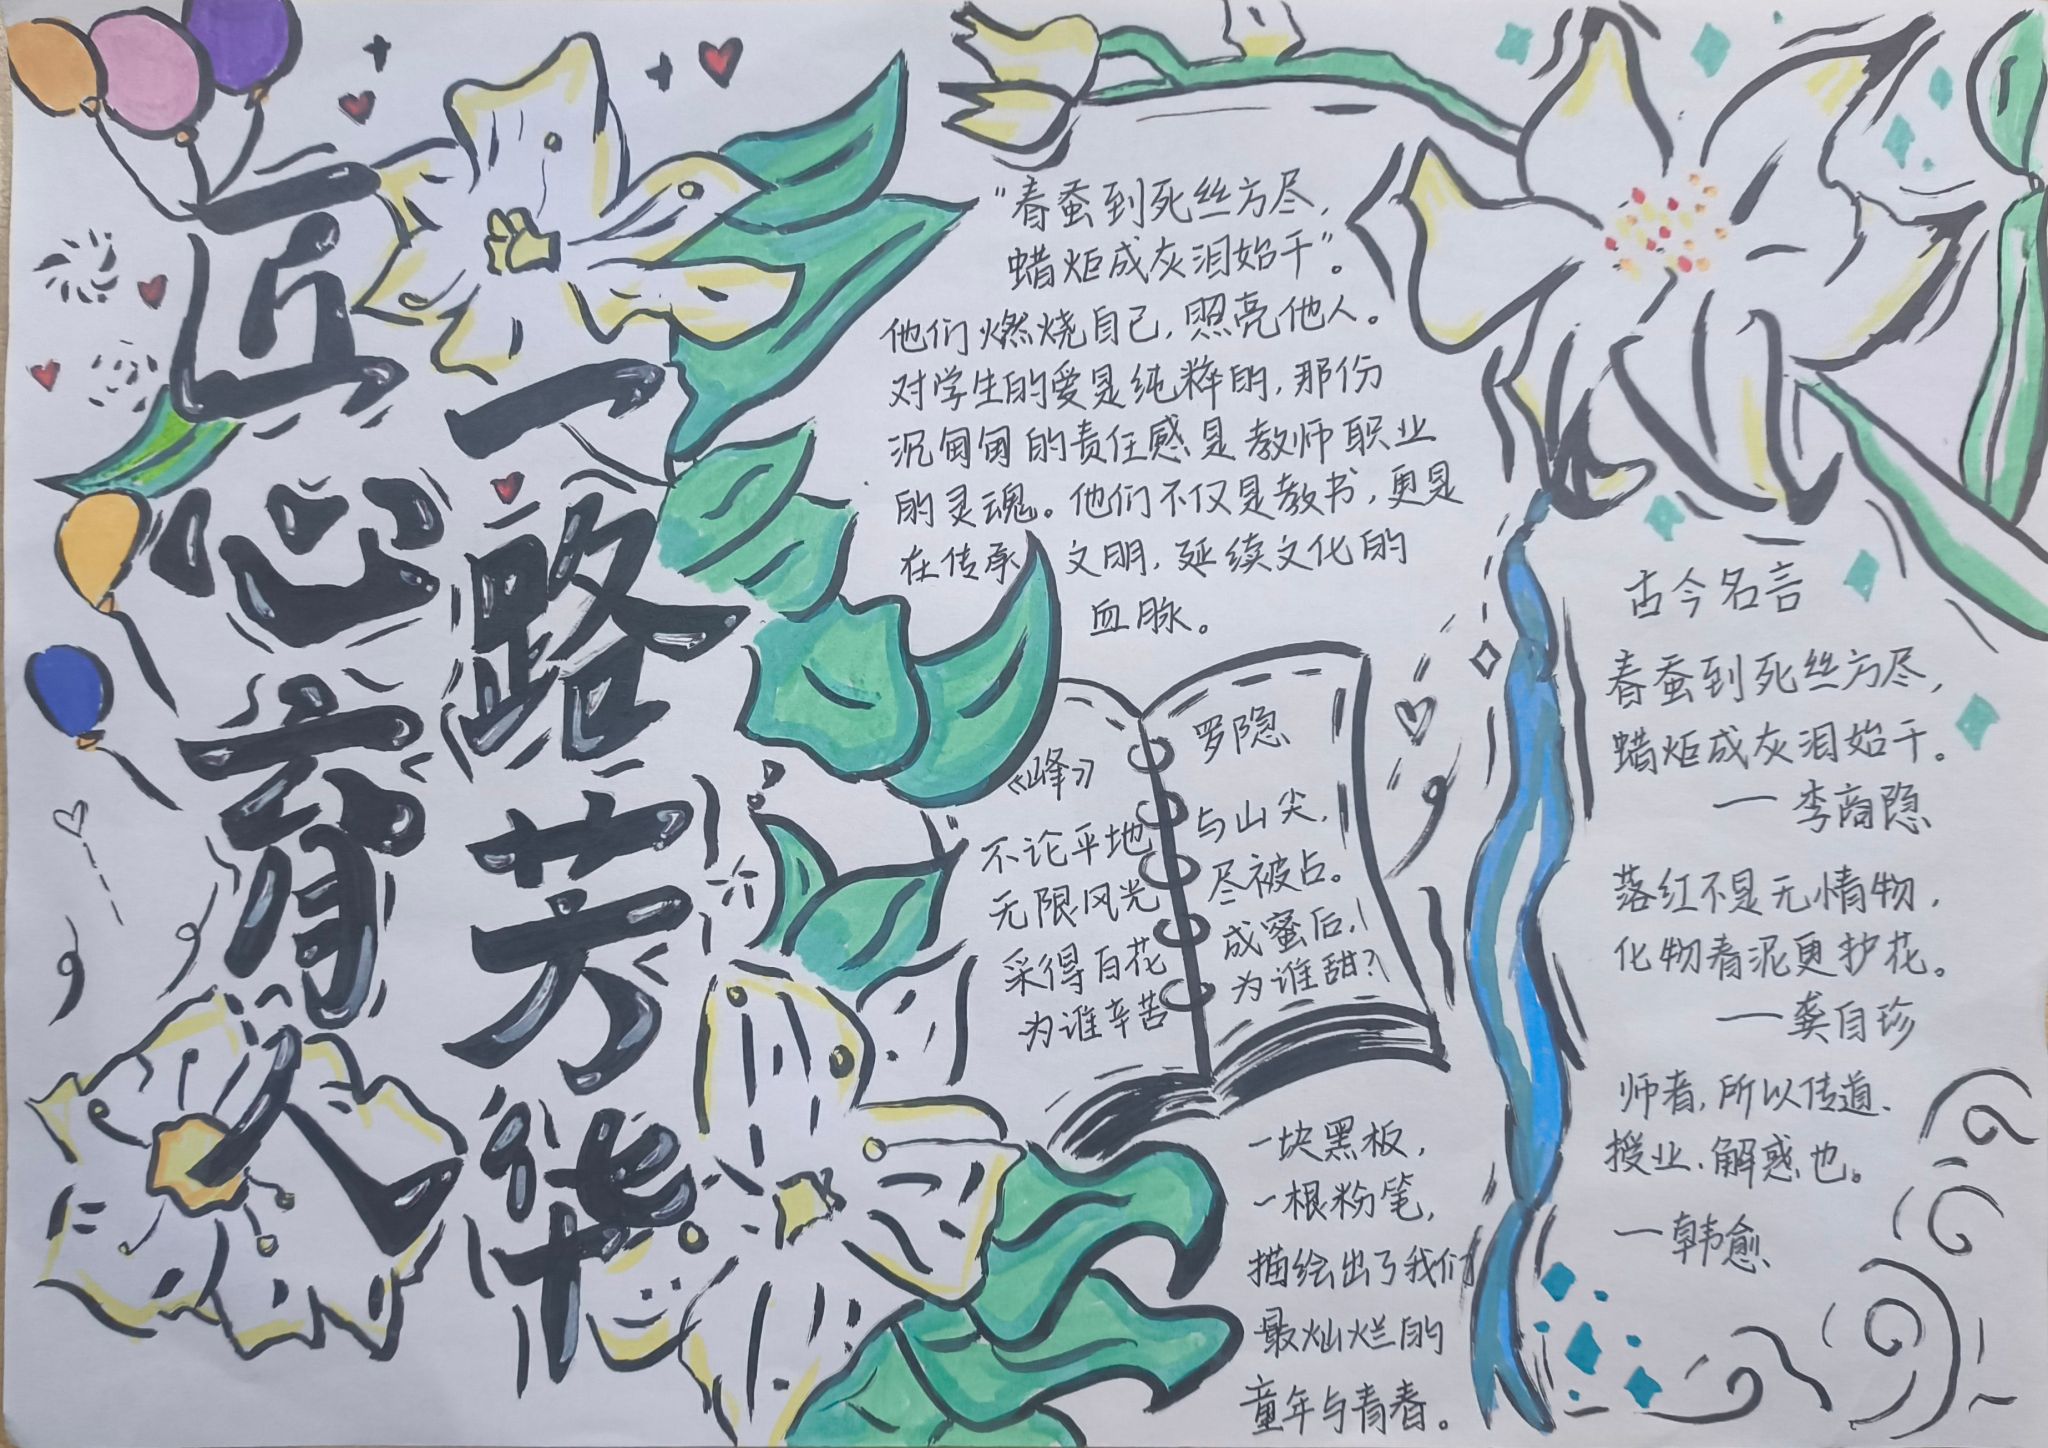 匠心育人
一路芳华
"春蚕到死丝方尽，
蜡炬成灰泪始干"。
他们燃烧自己，照亮他人。
对学生的爱是纯粹的，那份
沉甸甸的责任感是教师职业
的灵魂。他们不仅是教书，更是
在传承 文明，延续文化的
血脉。
《峰》
不论平地
无限风光
采得百花
为谁辛苦
罗隐
与山尖，
尽被占。
成蜜后，
为谁甜？
一块黑板，
一根粉笔，
描绘出了我们
最灿烂的
童年与青春。
古今名言
春蚕到死丝方尽，
蜡炬成灰泪始干。
一李商隐
落红不是无情物，
化物春泥更护花。
一龚自珍
师者，所以传道、
授业、解惑也。
一韩愈